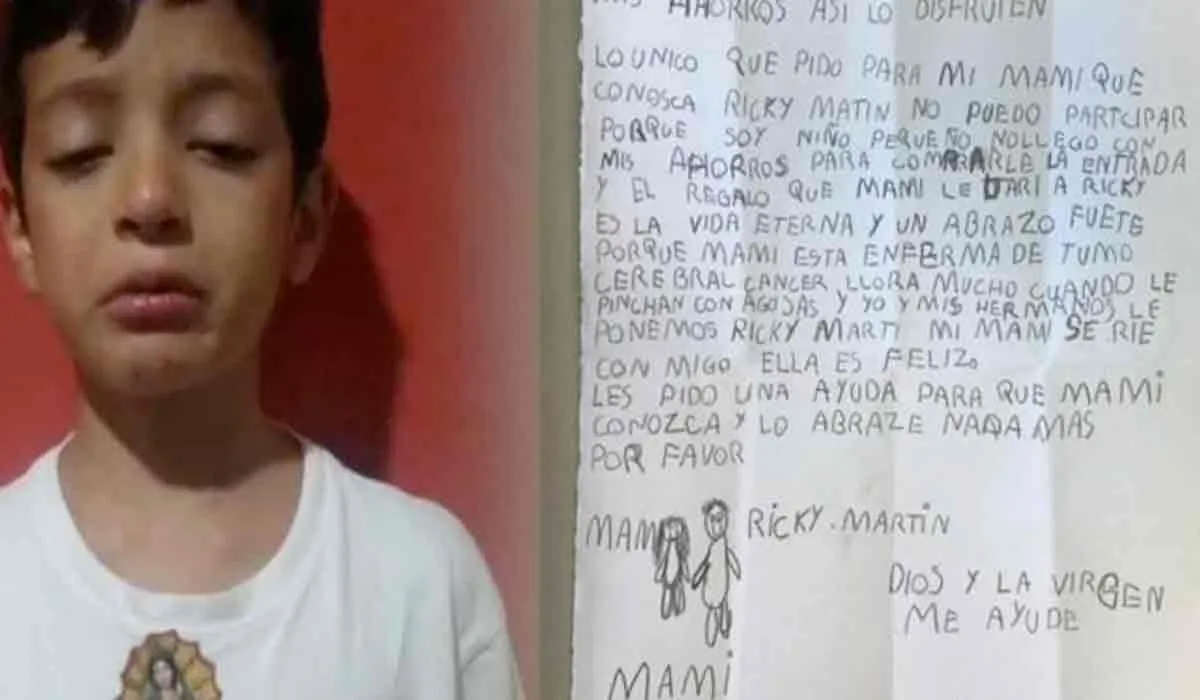 MIS AHORROS ASI LO DISFRUTEN
LO UNICO QUE PIDO PARA MI MAMI QUE
CONOSCA RICKY MATIN NO PUEDO PARTCIPAR
PORQUE SOY NIÑO PEQUEÑO NOLLEGO CON
MIS AHORROS PARA COMPRARLE LA ENTRADA
Y EL REGALO QUE MAMI LE DARI A RICKY
ES LA VIDA ETERNA Y UN ABRAZO FUETE
PORQUE MAMI ESTA ENFERMA DE TUMO
CEREBRAL CANCER LLORA MUCHO CUANDO LE
PINCHAN CON AGOJAS Y YO Y MIS HERMANOS LE
PONEMOS RICKY MARTI MI MAMI SE RIE
CON MIGO ELLA ES FELIZ.
LES PIDO UNA AYUDA PARA QUE MAMI
CONOZCA Y LO ABRAZE NADA MAS
POR FAVOR
MAMI RICKY.MARTIN
DIOS Y LA VIRGEN
ME AYUDE
MAMI